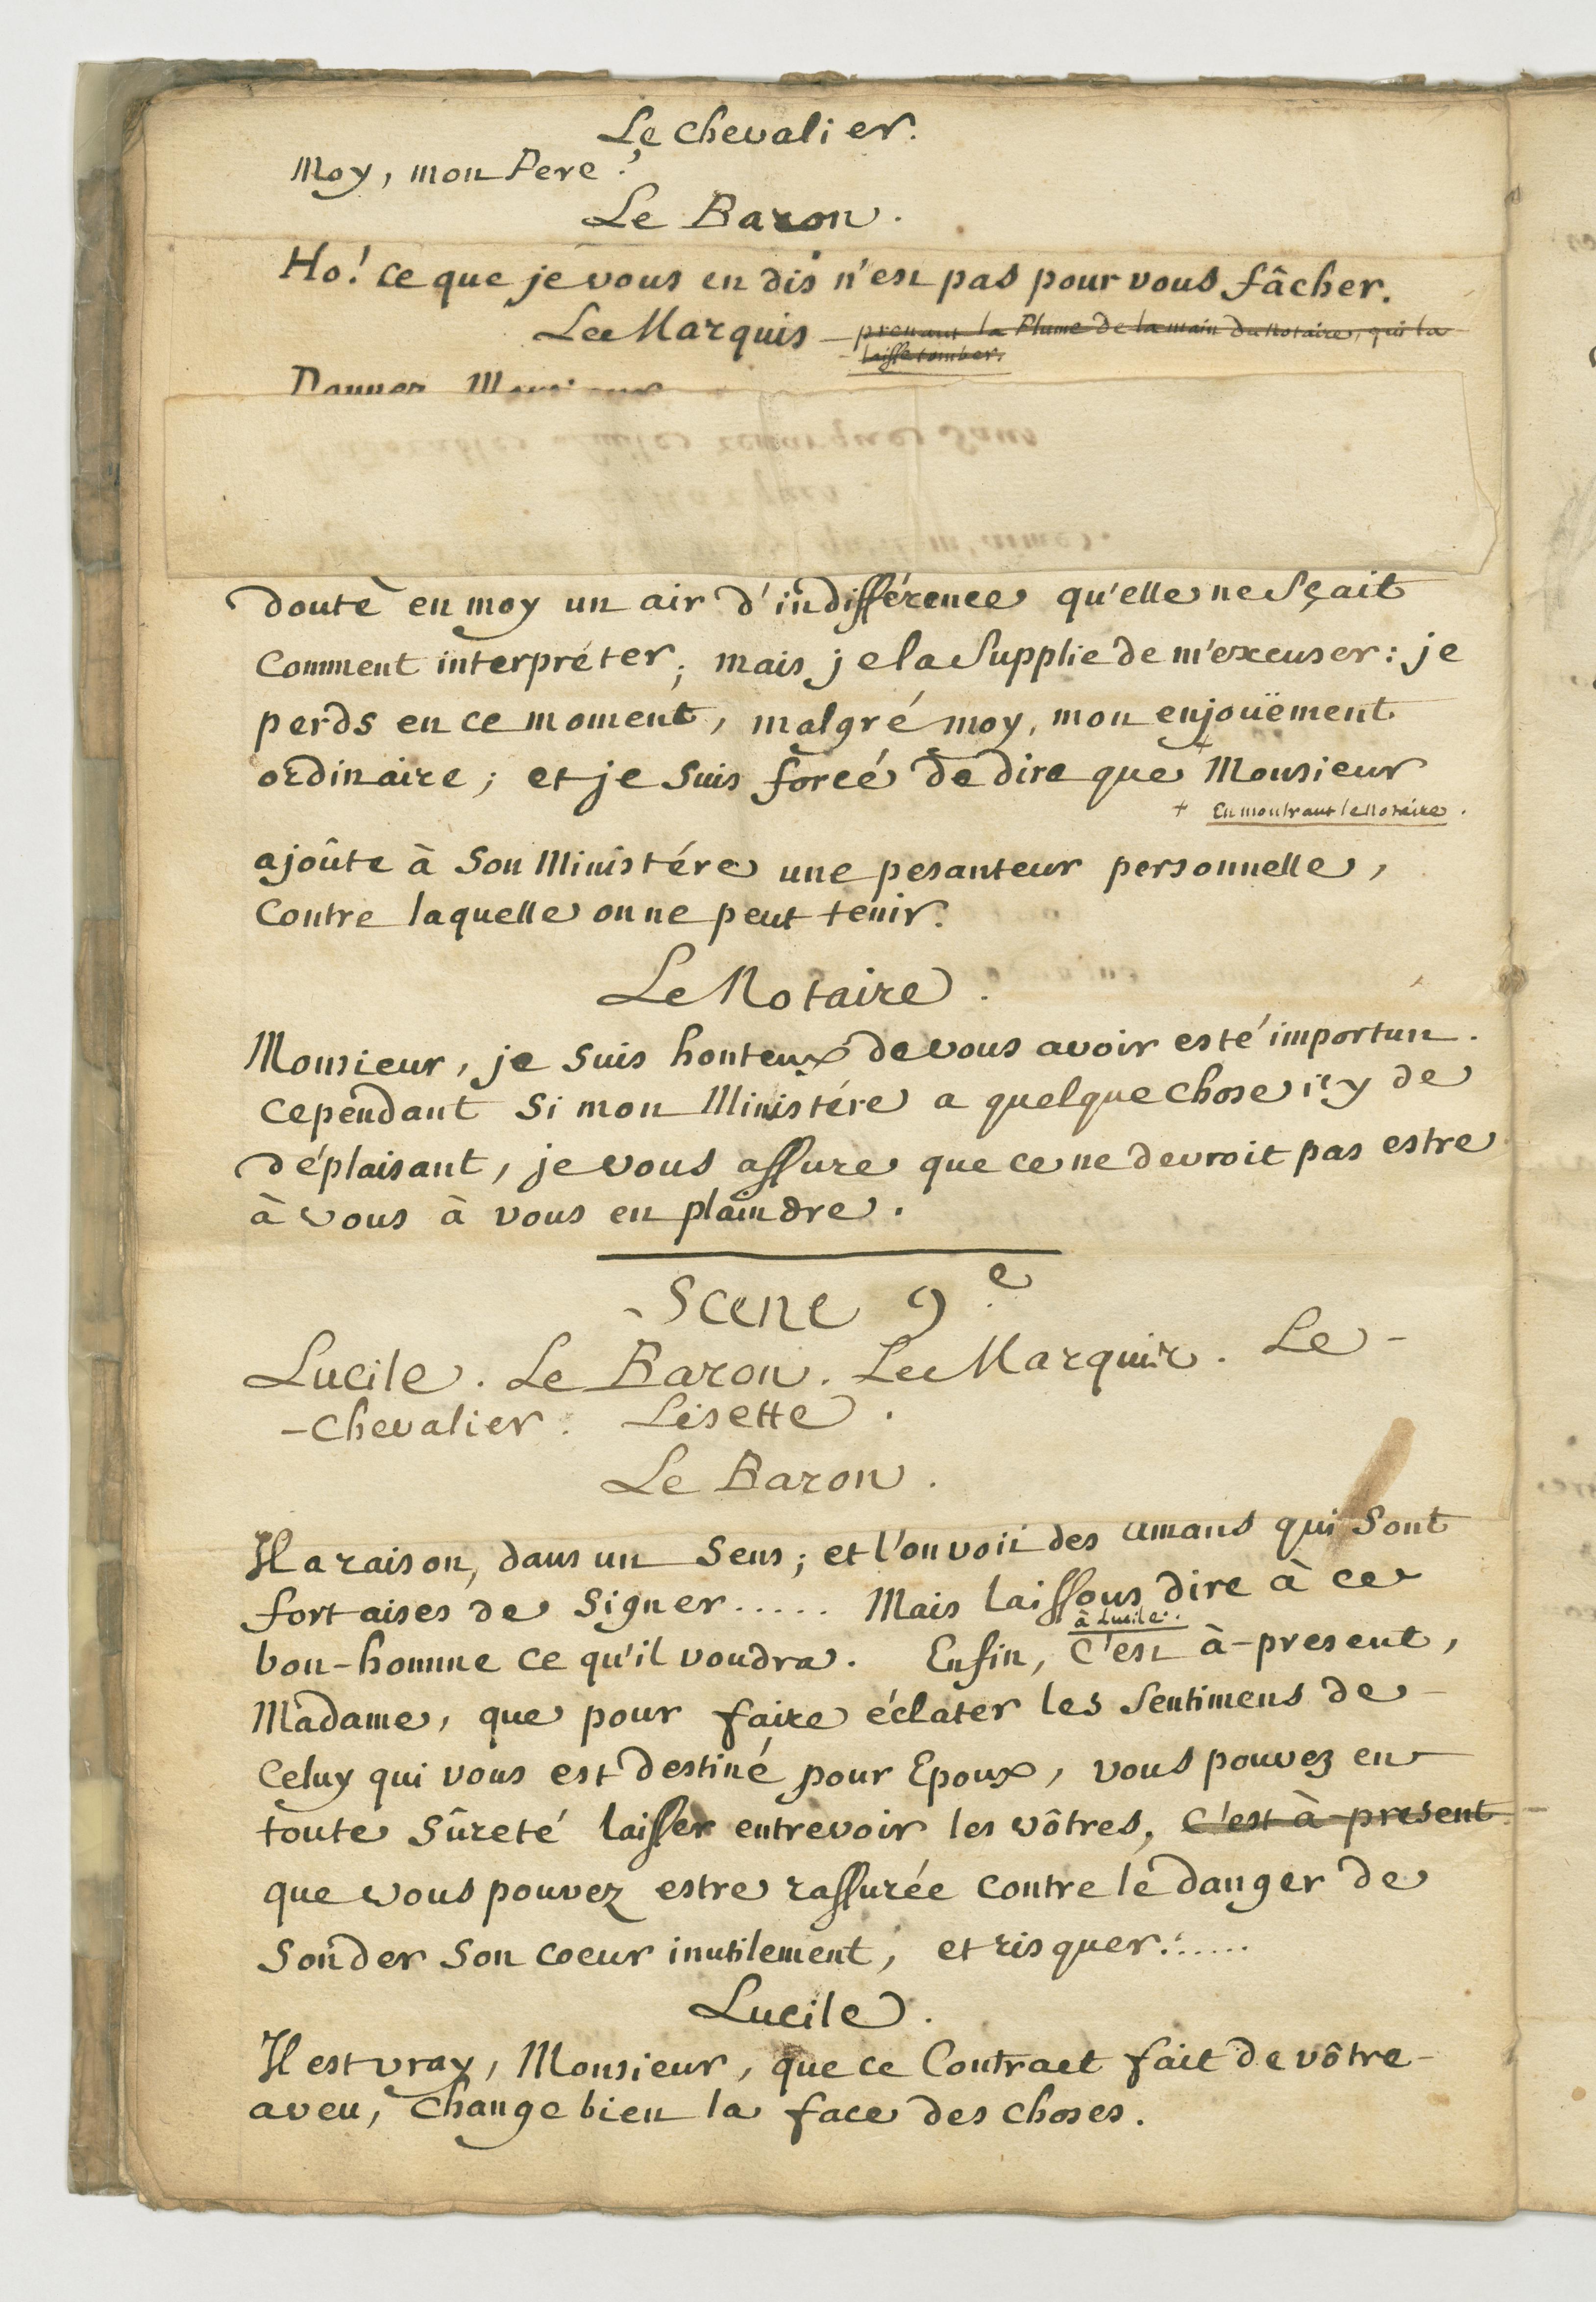 Le Chevalier.
Moy, mon Pere?
Le Baron.
Ho! ce que je vous en dis n'est pas pour vous fâcher.
Le Marquis prenant la Plume de la main du Notaire, qui la
laisse tomber.
Donnez, Monsieur
doute en moy un air d'indifférence qu'elle ne sçait
comment interpréter; mais je la supplie de m'excuser: je
perds en ce moment, malgré moy, mon enjoüement
ordinaire; et je suis forcé de dire que + Monsieur
+ En montrant le Notaire.
ajoûte à son Ministére une pesanteur personnelle,
contre laquelle on ne peut tenir.
Le Notaire.
Monsieur, je suis honteux de vous avoir esté importun.
Cependant si mon Ministére a quelque chose icy de
déplaisant, je vous assure que ce ne devroit pas estre
à vous à vous en plaindre.
Scene 9.e
Lucile. Le Baron. Le Marquis. Le-
-Chevalier. Lisette.
Le Baron.
Il a raison, dans un sens; et l'on voit des amans qui sont
fort aises de signer..... Mais laissons dire à ce
à Lucile.
bon-homme ce qu'il voudra. Enfin, c'est à-present,
Madame, que pour faire éclater les sentimens de-
celuy qui vous est destiné pour Epoux, vous pouvez en
toute sûreté laisser entrevoir les vôtres, c'est à-present-
que vous pouvez estre rassurée contre le danger de
sonder son coeur inutilement, et risquer......
Lucile.
Il est vray, Monsieur, que ce Contract fait de vôtre-
aveu, change bien la face des choses.